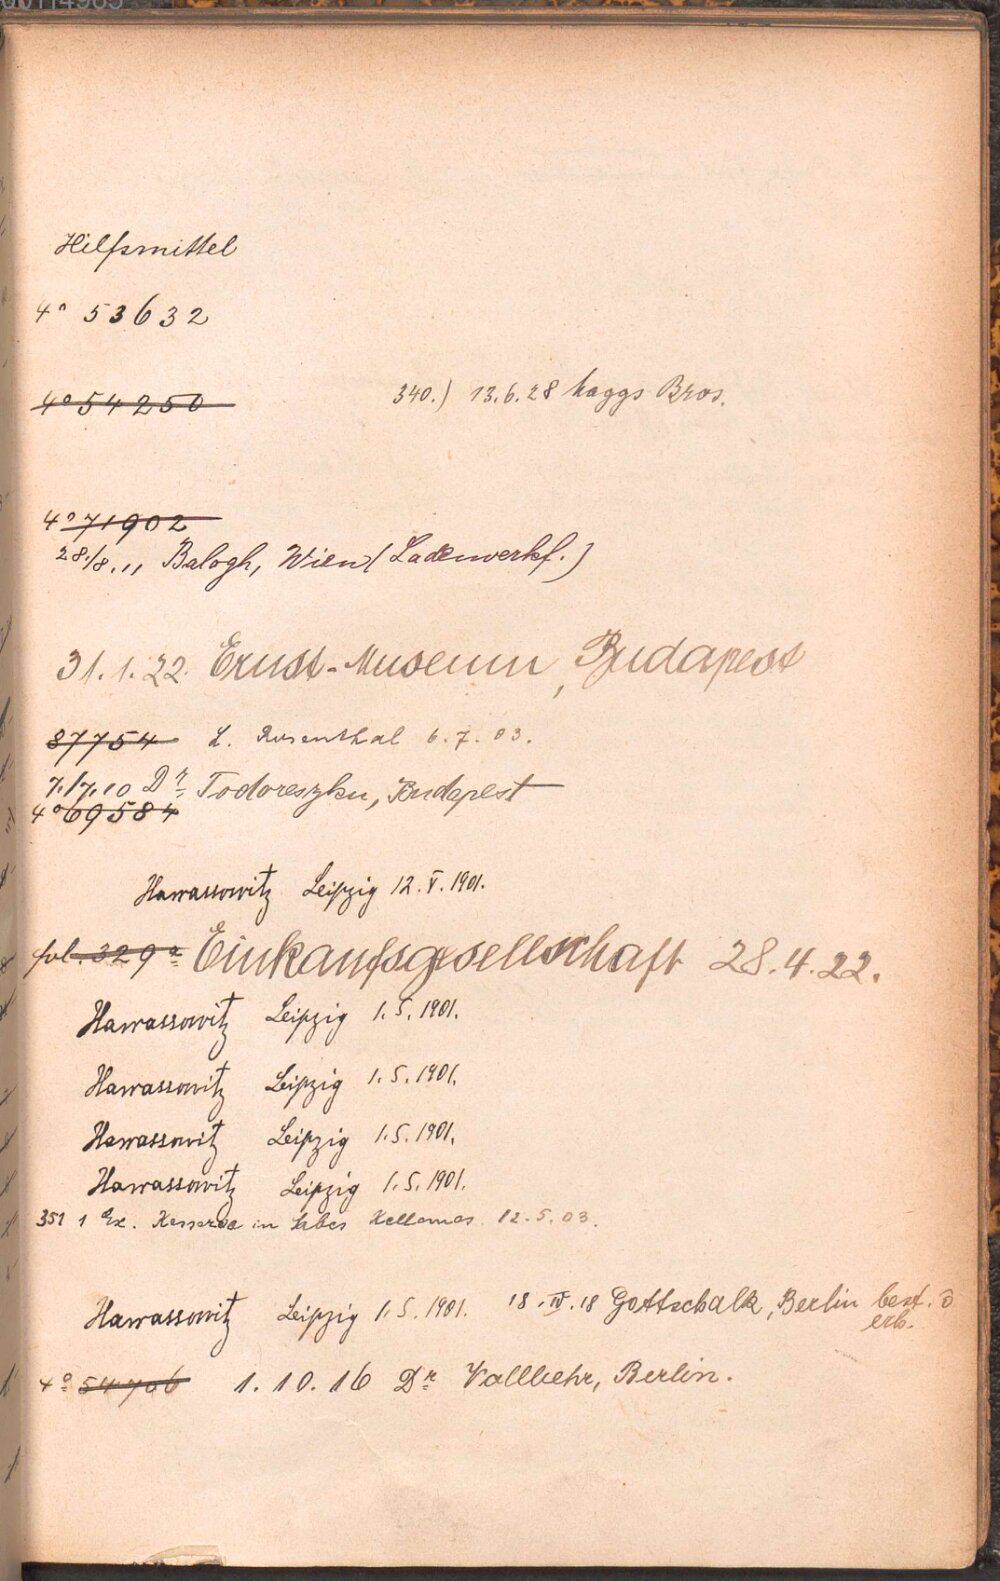 Hilfsmittel
4° 53632
4° 54250 340.) 13.6.28 Maggs Bros.
4° 71902
28./8.11 Balogh, Wien (Ladenverkf.)
31.1.22. Ernst-Museum, Budapest
87754 L. Rosenthal 6.7.03.
7./7.10 Dr Todoreszku, Budapest
4° 69584
Harrassowitz Leipzig 12.V.1901.
fol. 329a Einkaufsgesellschaft 28.4.22.
Harrassowitz Leipzig 1.5.1901.
Harrassowitz Leipzig 1.5.1901.
Harrassowitz Leipzig 1.5.1901.
Harrassowitz Leipzig 1.5.1901.
351 1 Ex. in 12.5.03.
Harrassowitz Leipzig 1.5.1901. 18.IV.18 Gottschalk, Berlin best.
erh.
4° 54706 1.10.16 Dr Vollbehr, Berlin.